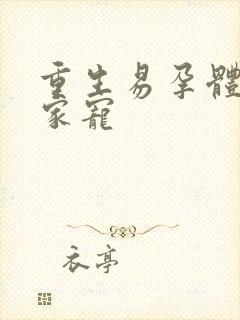 重生易孕體
家寵
衣亭